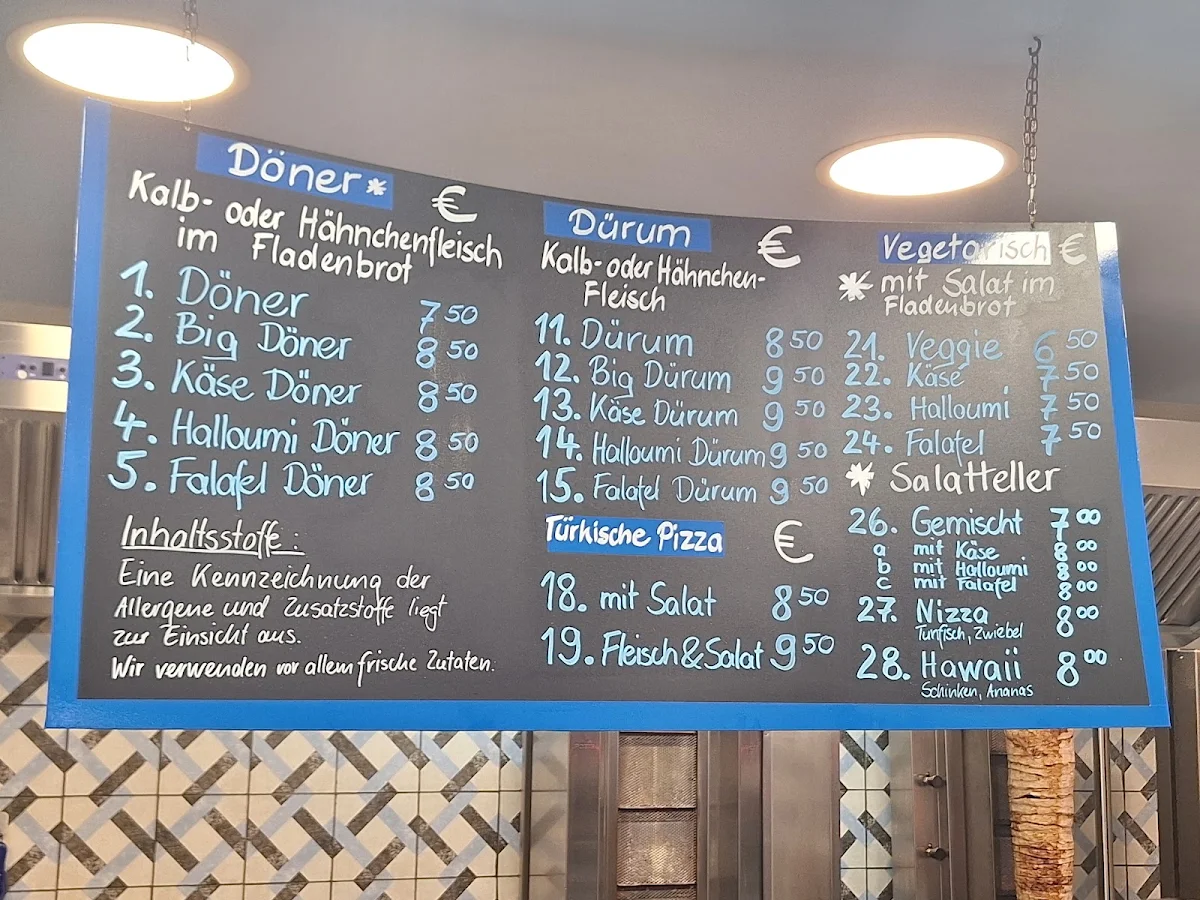 Döner* €
Kalb- oder Hähnchenfleisch
im Fladenbrot
1. Döner 7 50
2. Big Döner 8 50
3. Käse Döner 8 50
4. Halloumi Döner 8 50
5. Falafel Döner 8 50
Inhaltsstoffe:
Eine Kennzeichnung der
Allergene und Zusatzstoffe liegt
zur Einsicht aus.
Wir verwenden vor allem frische Zutaten.
Dürum €
Kalb- oder Hähnchen-
Fleisch
11. Dürum 8 50
12. Big Dürum 9 50
13. Käse Dürum 9 50
14. Halloumi Dürum 9 50
15. Falafel Dürum 9 50
Türkische Pizza €
18. mit Salat 8 50
19. Fleisch & Salat 9 50
Vegetarisch €
* mit Salat im
Fladenbrot
21. Veggie 6 50
22. Käse 7 50
23. Halloumi 7 50
24. Falafel 7 50
* Salatteller
26. Gemischt 7 00
a mit Käse 8 00
b mit Halloumi 8 00
c mit Falafel 8 00
27. Nizza 8 00
Tunfisch, Zwiebel
28. Hawaii 8 00
Schinken, Ananas